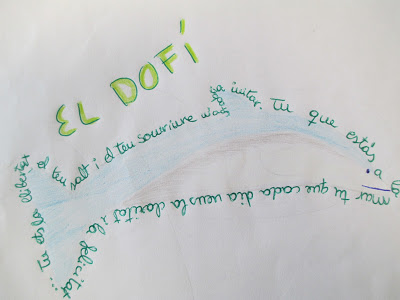 EL DOFÍ
el teu salt i el teu somriure m'agrada imitar. Tu que estàs a la
mar tu que cada dia veus la claritat i la felicitat.
llibertat